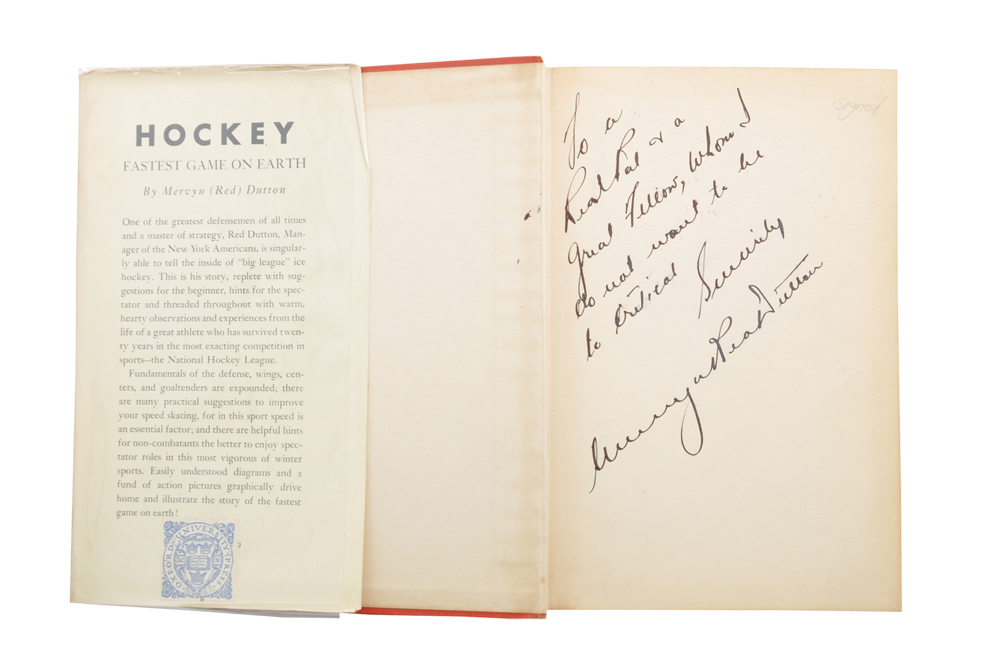 HOCKEY
FASTEST GAME ON EARTH
By Mervyn (Red) Dutton
One of the greatest defensemen of all times
and a master of strategy, Red Dutton, Man-
ager of the New York Americans, is singular-
ly able to tell the inside of "big league" ice
hockey. This is his story, replete with sug-
gestions for the beginner, hints for the spec-
tator and threaded throughout with warm,
hearty observations and experiences from the
life of a great athlete who has survived twen-
ty years in the most exacting competition in
sports—the National Hockey League.
Fundamentals of the defense, wings, cen-
ters, and goaltenders are expounded; there
are many practical suggestions to improve
your speed skating, for in this sport speed is
an essential factor; and there are helpful hints
for non-combatants the better to enjoy spec-
tator roles in this most vigorous of winter
sports. Easily understood diagrams and a
fund of action pictures graphically drive
home and illustrate the story of the fastest
game on earth!
OXFORD UNIVERSITY PRESS
signed
To a
Real Pal & a
Great Fellow, Whom I
do not want to be
to critical
Sincerely
Mervyn "Red" Dutton